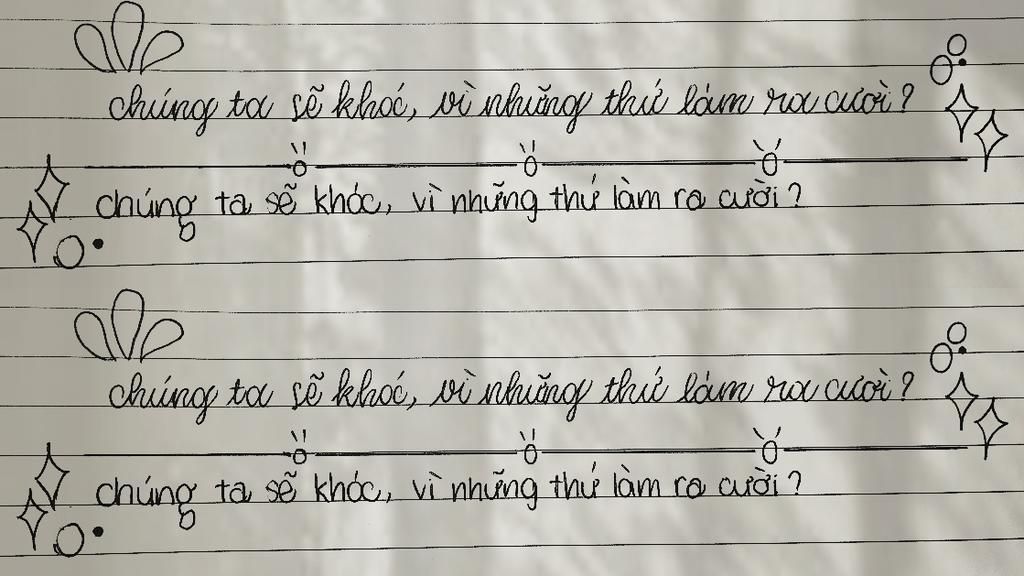 chúng ta sẽ khóc, vì những thứ làm ra cười?
chúng ta sẽ khóc, vì những thứ làm ra cười?
chúng ta sẽ khóc, vì những thứ làm ra cười?
chúng ta sẽ khóc, vì những thứ làm ra cười?